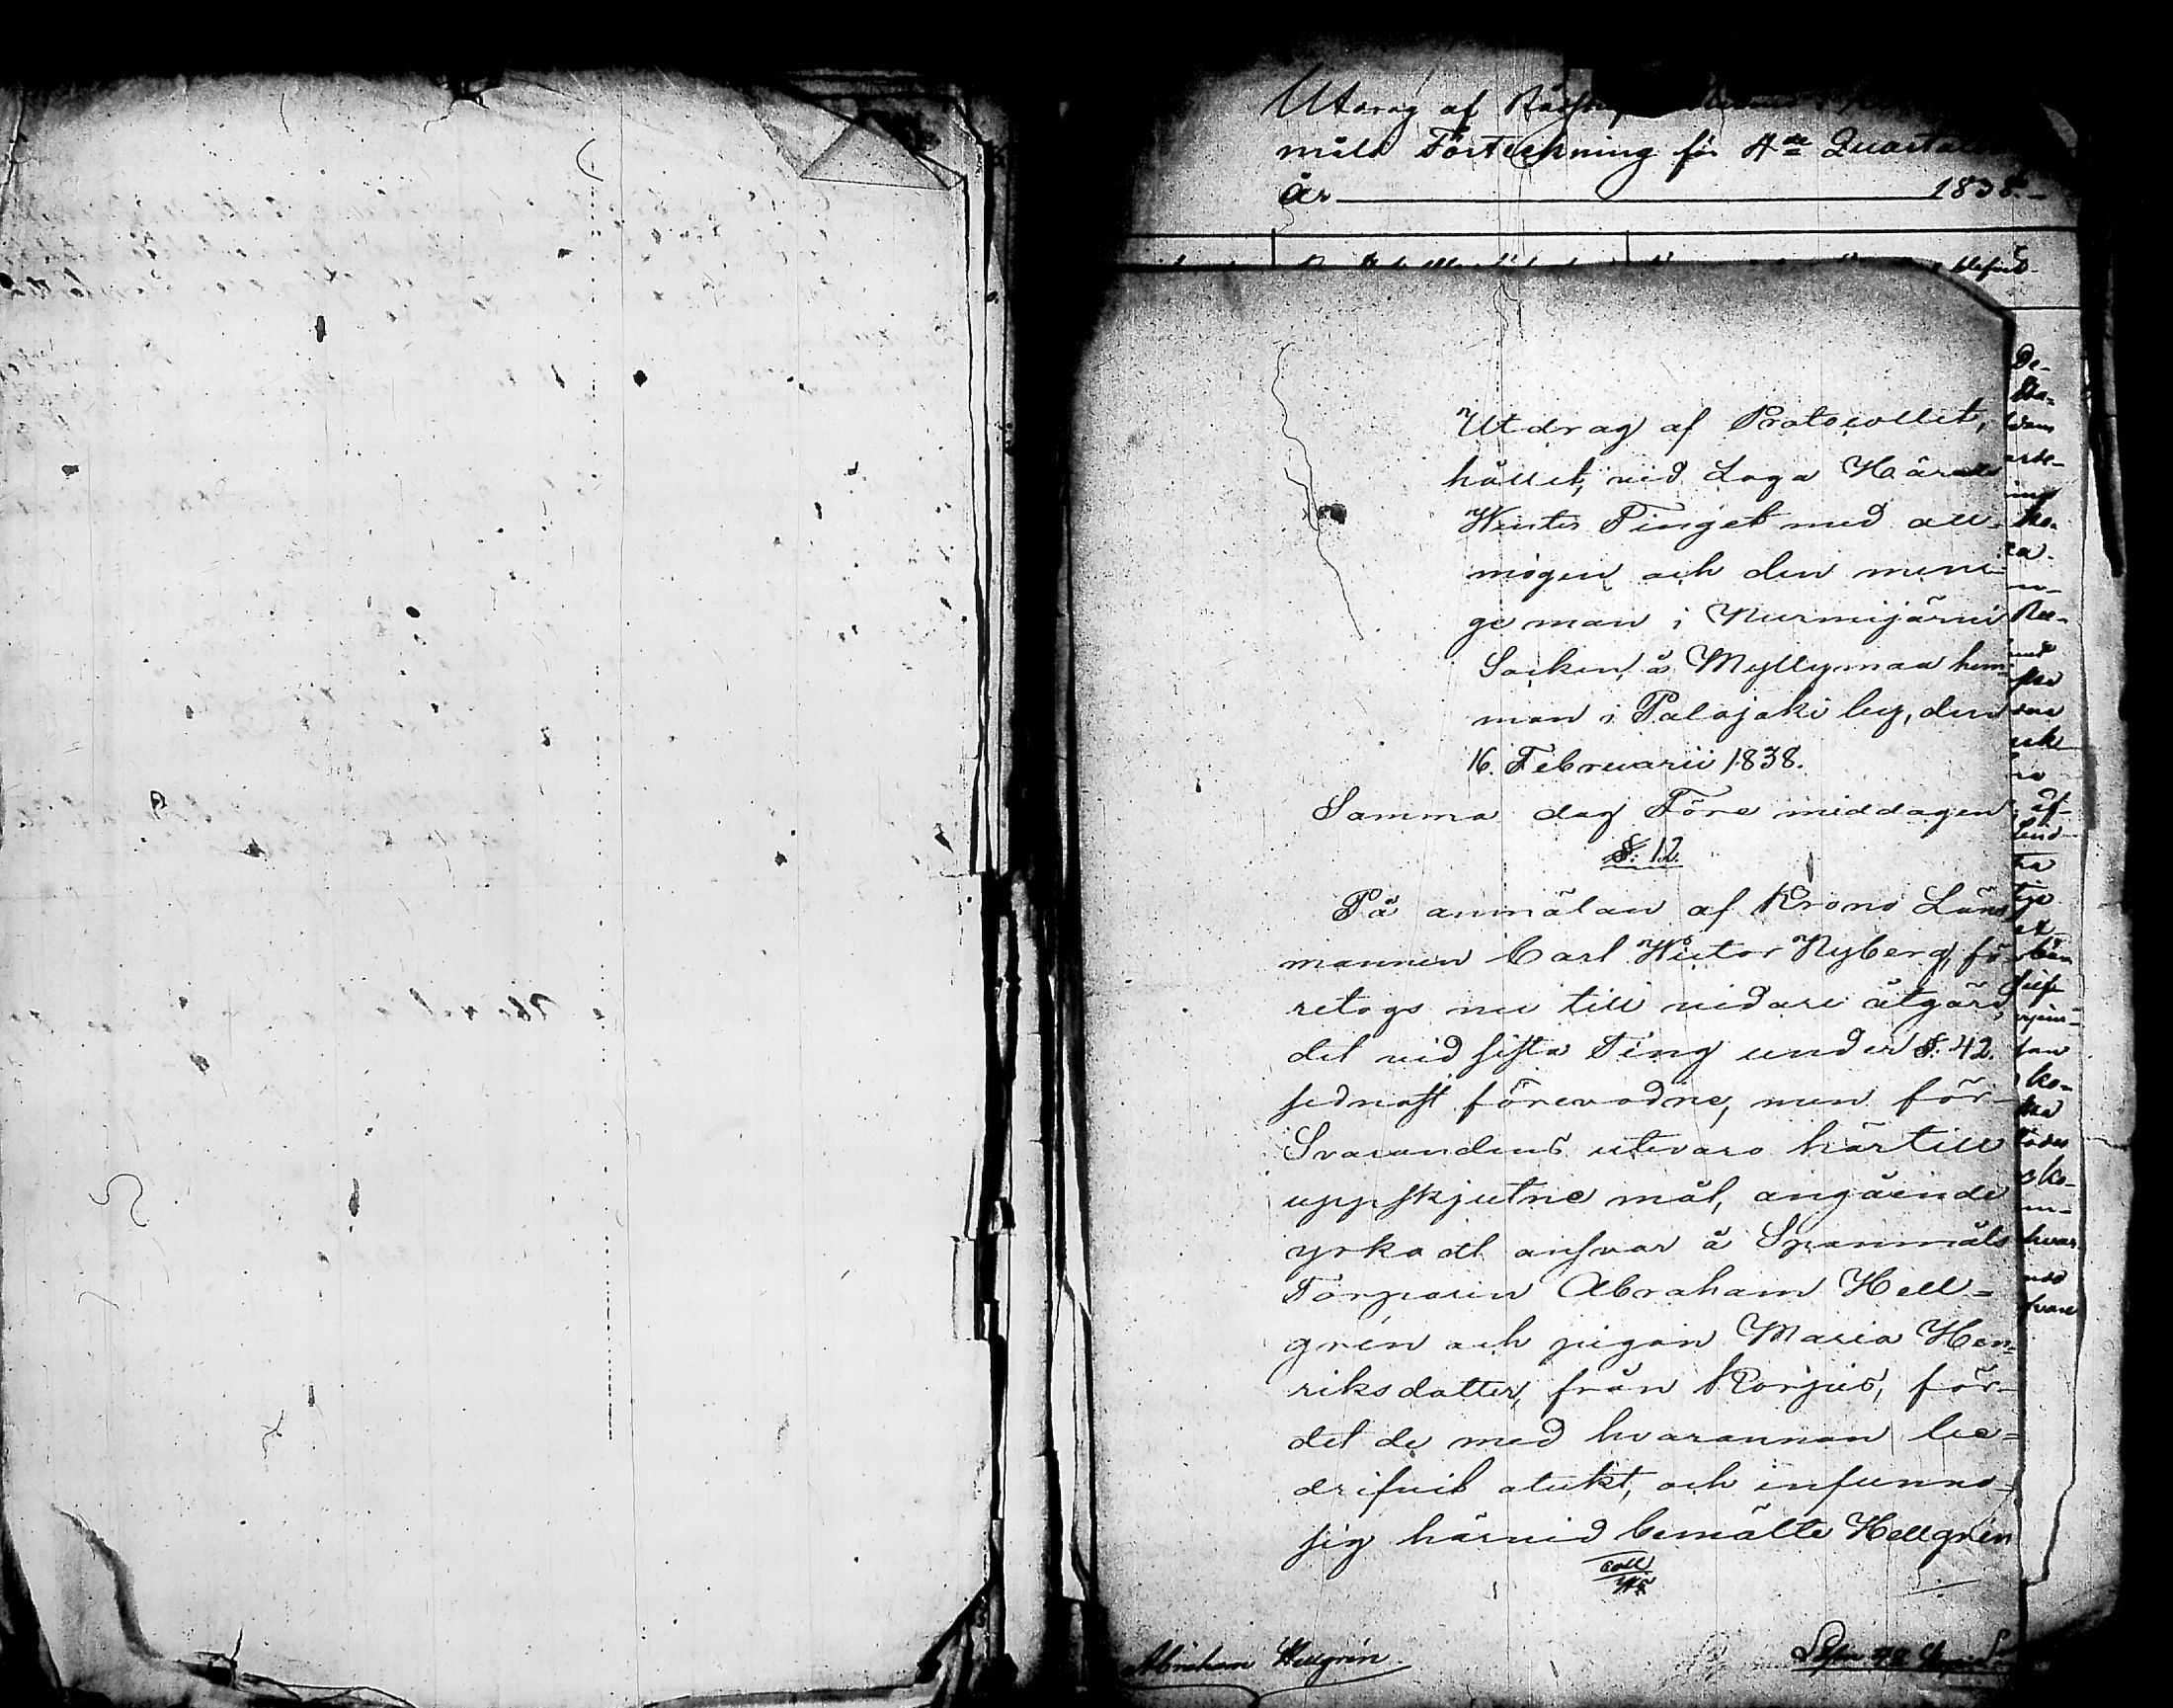 Utdrag af
måls Förteckning för 4de Quartalet
År 1838.
Utdrag af Protocollet,
hållet, vid Laga Härads
Winter Tinget med all-
mogen och den meni-
ge man i Nurmijärvi
Socken, å Myllymaa hem-
man i Palojoki by, den
16. Februarii 1838.
Samma dag Före middagen
§. 12.
På anmälan af Krono Läns
mannen Carl Victor Nyberg, fö-
retogs nu till vidare åtgärd,
det vid sista Ting under §. 42.
sednast förevordne, men för
Svarandens utevaro härtill
uppskjutne mål, angående
yrkadt ansvar å Spanmåls
Torparen Abraham Hell-
grén och pigan Maria Hen-
riksdotter, från Korjus, för-
det de med hvarannan be-
drifvit otukt, och infunno
sig härvid bemälte Hellgrén
Coll
Abraham Hellgrén